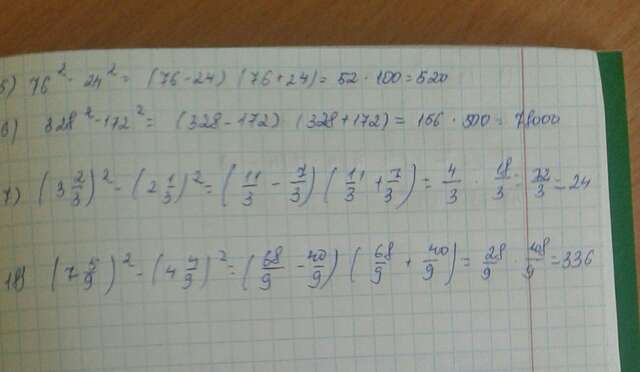 5) 76² - 24² = (76-24) (76+24) = 52 · 100 = 520
6) 328² - 172² = (328-172) (328+172) = 156 · 500 = 78000
7) (3 2/3)² - (2 1/3)² = (11/3 - 7/3) (11/3 + 7/3) = 4/3 · 18/3 = 72/3 = 24
18) (7 5/9)² - (4 4/9)² = (68/9 - 40/9) (68/9 + 40/9) = 28/9 · 108/9 = 336